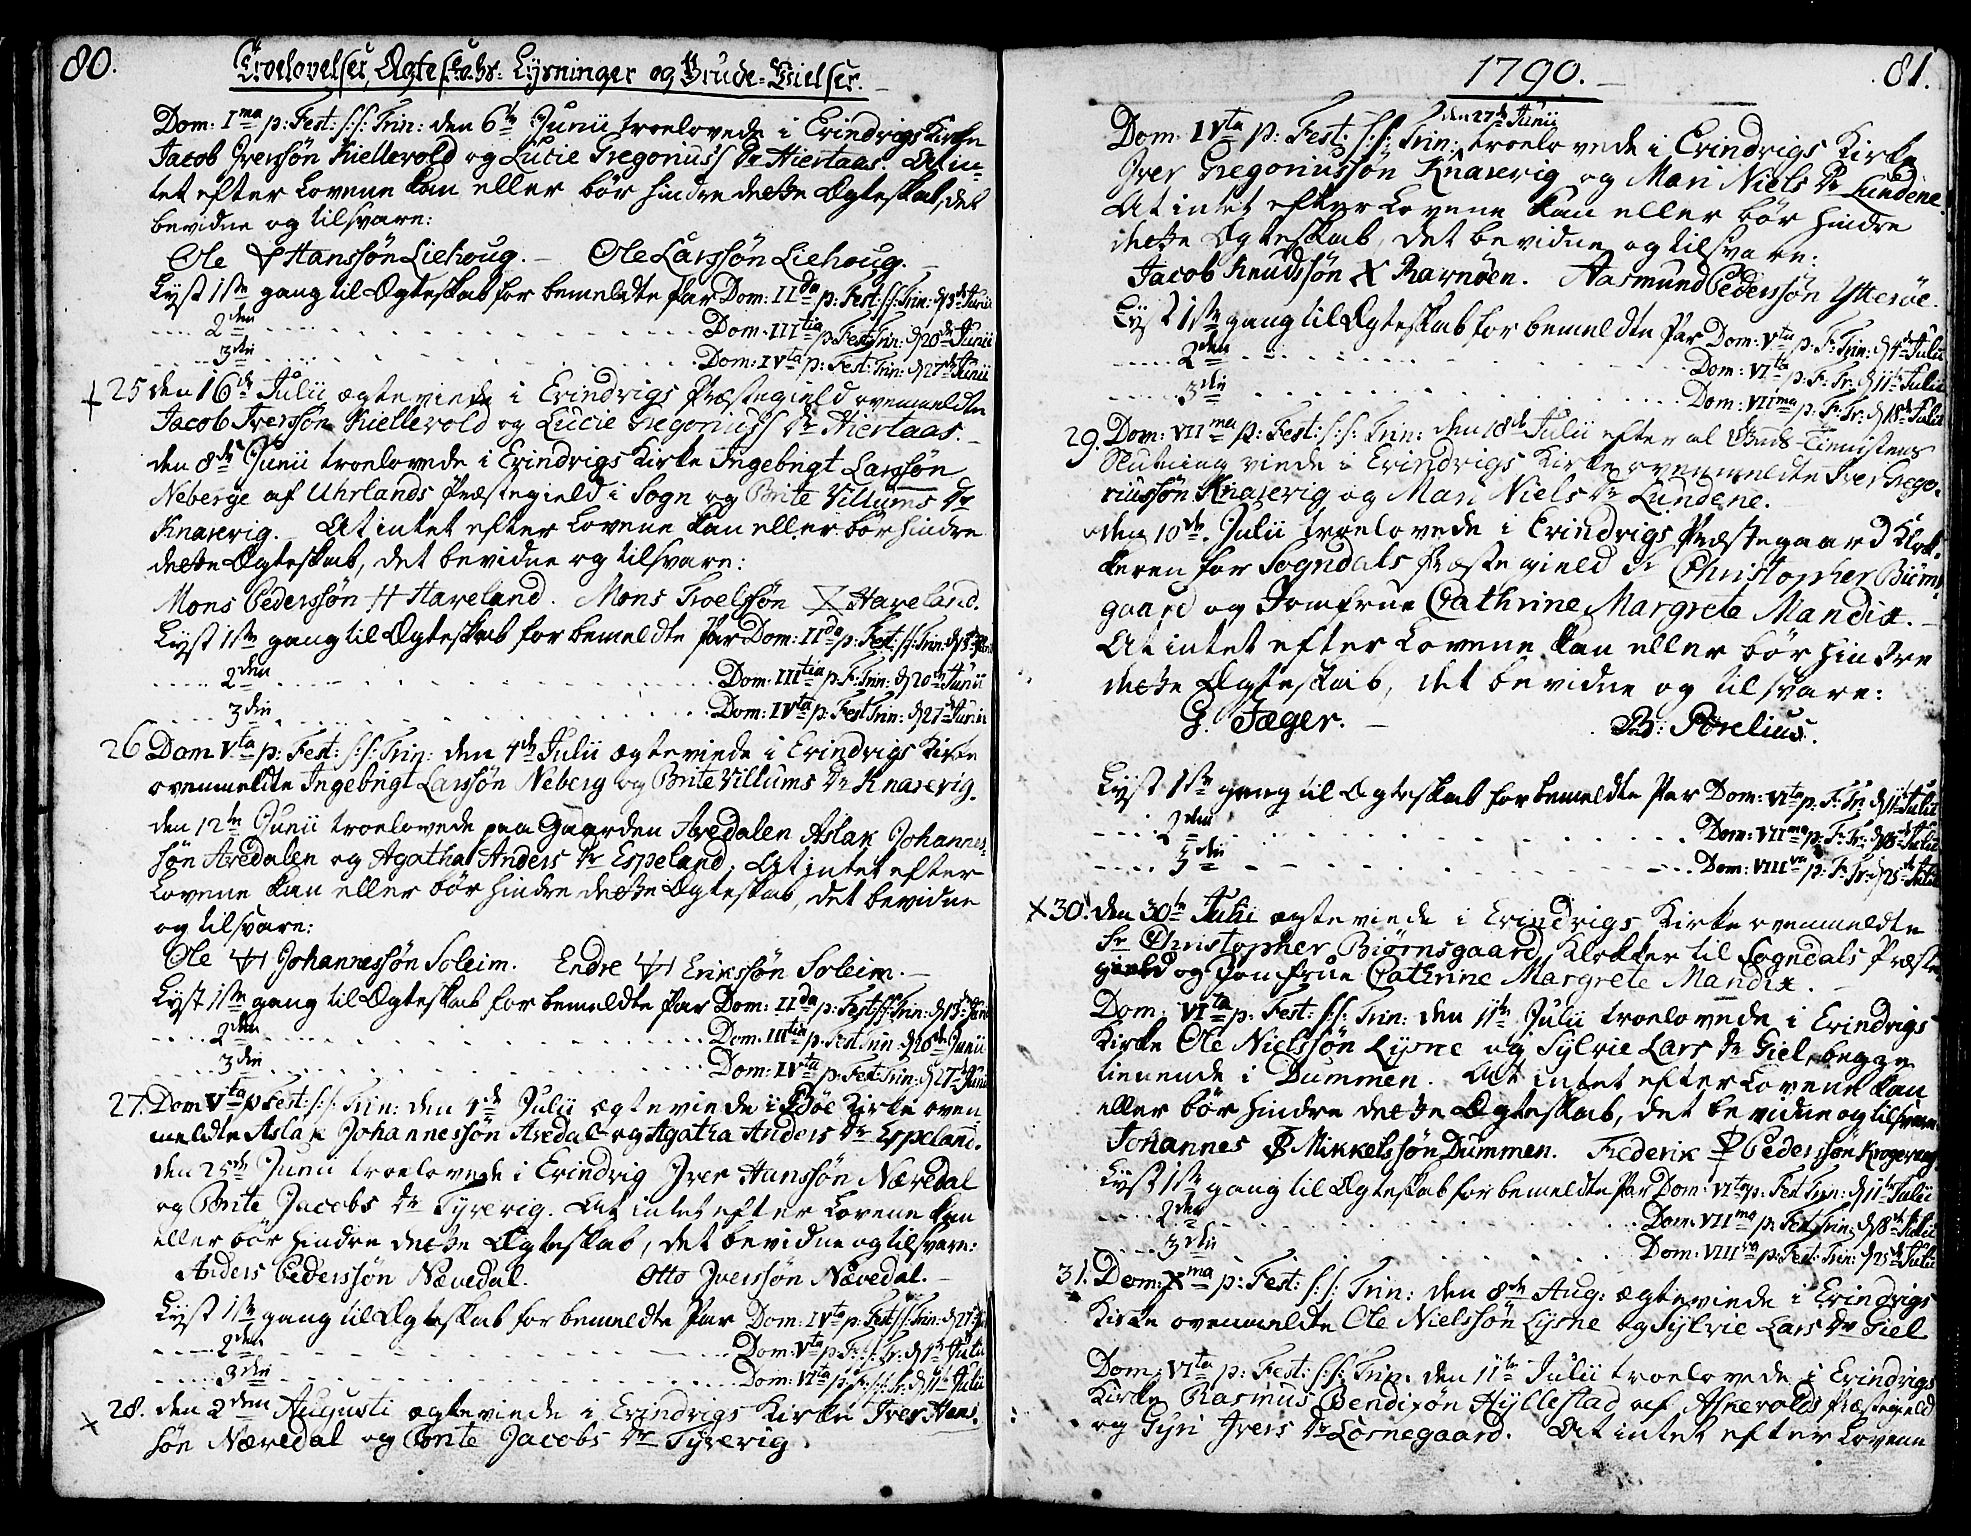 80.
Troelovelser, Ægteskabs-Lysninger og Brude-Vielser.
Dom: I ma p: Fest: S:S: Trin: den 6te Junii troelovede i Evindvigs Kirke
Jacob Iverssøn Kiellevold og Lucie Gregorius's Dr Hiertaas. At in-
tet efter Lovene kan eller bør hindre dette Ægteskab, det
bevidne og tilsvare:
Ole Hanssøn Liehoug. Ole Larssøn Liehoug.
Lyst 1ste gang til Ægteskab for bemeldte Par Dom: II da p: Fest: S:S: Trin: d 13de Junii
2den Dom: III tia p: Fest: Trin: d 20de Junii
3die Dom: IV ta p: Fest: Trin: d 27de Junii
25 den 16de Julii ægteviede i Evindvigs Præstegield ovenmeldte
Jacob Iverssøn Kiellevold og Lucie Gregorius's Dr Hiertaas.
den 8de Junii troelovede i Evindvigs Kirke Ingebrigt Larssøn
Neberge af Uhrlands Præstegield i Sogn og Brite Villums Dr
Knarevig. At intet efter Lovene kan eller bør hindre
dette Ægteskab, det bevidne og tilsvare:
Mons Pederssøn Haveland. Mons Troelssøn Haveland.
Lyst 1ste gang til Ægteskab for bemeldte Par Dom: II da p: Fest: S:S: Trin: d 13de Junii
2den Dom: III tia p: F: Trin: d 20de Junii
3die Dom: IV ta p: Fest Trin: d 27de Junii
26 Dom V ta p: Fest: S:S: Trin: den 4de Julii ægteviede i Evindvigs Kirke
ovenmeldte Ingebrigt Larssøn Neberg og Brite Villums Dr Knarevig.
den 12te Junii troelovede paa Gaarden Avedalen Aslak Johannes-
søn Avedalen og Agatha Anders Dr Espeland. At intet efter
Lovene kan eller bør hindre dette Ægteskab, det bevidne
og tilsvare:
Ole Johannessøn Soleim. Endre Erikssøn Soleim.
Lyst 1ste gang til Ægteskab for bemeldte Par Dom: II da p: Fest S:S: Trin: d 13de Junii
2den Dom: III tia p: Fest Trin: d 20de Junii
3die Dom: IV ta p: Fest: Trin: d 27de Junii
27. Dom V ta p Fest: S:S: Trin: den 4de Julii ægteviede i Bøe Kirke oven
meldte Aslak Johannessøn Avedal og Agatha Anders Dr Espeland.
den 25de Junii troelovede i Evindvig Iver Hanssøn Nævedal
og Brite Jacobs Dr Tyvevig. At intet efter Lovene kan
eller bør hindre dette Ægteskab, det bevidne og tilsvare:
Anders Pederssøn Nævedal. Otto Iverssøn Nævedal.
Lyst 1ste gang til Ægteskab for bemeldte Par Dom: IV ta p: Fest S:S: Trin: d 27de
2den Dom: V ta p: F: S:S: Tr: d 4de Julii
3die Dom: VI ta p: F: S:S: Tr: d 11te Julii
28. den 2den Augusti ægteviede i Evindvigs Kirke Iver Hans-
søn Nævedal og Brite Jacobs Dr Tyvevig.
1790.
81.
den 27de Junii
Dom: IV ta p: Fest: S:S: Trin: troelovede i Evindrigs Kirke
Iver Gregoriussøn Knarevig og Mari Niels Dr Lundene.
At intet efter Lovene kan eller bør hindre
dette Ægteskab, det bevidne og tilsvare:
Jacob Knudssøn Ravnøen. Aasmund Pederssøn Ytterøe.
Lyst 1ste gang til Ægteskab for bemeldte Par Dom: V ta p: F: Trin: d 4de Julii
2den Dom: VI ta p: F: Tr: d 11te Julii
3die Dom: VII ma p: F: Tr: d 18de Julii
29. Dom: VII ma p: Fest: S:S: Trin: den 18de Julii efter al Guds-Tienistens
Slutning viede i Evindvigs Kirke ovenmeldte Iver Grego-
riussøn Knarevig og Mari Niels Dr Lundene.
den 10de Julii troelovede i Evindvigs Præstegaard Klok-
keren for Sogndals Præstegield Sr Christopher Biørns-
gaard og Jomfrue Cathrine Margrete Mandix.
At intet efter Lovene kan eller bør hindre
dette Ægteskab, det bevidne og tilsvare:
G. Jæger. Porelius.
Lyst 1ste gang til Ægteskab for bemeldte Par Dom: VI ta p: F: Tr: d 11te Julii
2den Dom: VII ma p: F: Tr: d 18de Julii
3die Dom: VIII va p: F: Tr: d 25de Julii
30. den 30te Julii ægteviede i Evindvigs Kirke ovenmeldte
Sr Christopher Biørnsgaard, Klokker til Sogndals Præste-
gield og Jomfrue Cathrine Margrete Mandix.
Dom: VI ta p: Fest: S:S: Trin: den 11te Julii troelovede i Evindvigs
Kirke Ole Nielssøn Lysne og Sylvie Lars Dr Giel, begge
tienende i Dummen. At intet efter Lovene kan
eller bør hindre dette Ægteskab, det bevidne og tilsvare
Johannes Mikkelssøn Dummen. Frederik Pederssøn
Lyst 1ste gang til Ægteskab for bemeldte Par Dom: VI ta p: Fest Trin: d 11te Julii
2den Dom: VII ma p: Fest Trin: d 18de Julii
3die Dom: VIII va p: Fest: Trin: d 25de Julii
31. Dom: X ma p: Fest: S:S: Trin: den 8de Aug: ægteviede i Evindvigs
Kirke ovenmeldte Ole Nielssøn Lysne og Sylvie Lars Dr Giel
Dom: VI ta p: Fest: S:S: Trin: den 11te Julii troelovede i Evindvigs
Kirke Rasmus Bendixøn Hyllestad af Askevolds Præstegield
og Gyri Ivers Dr Lornegaard. At intet efter Lovene